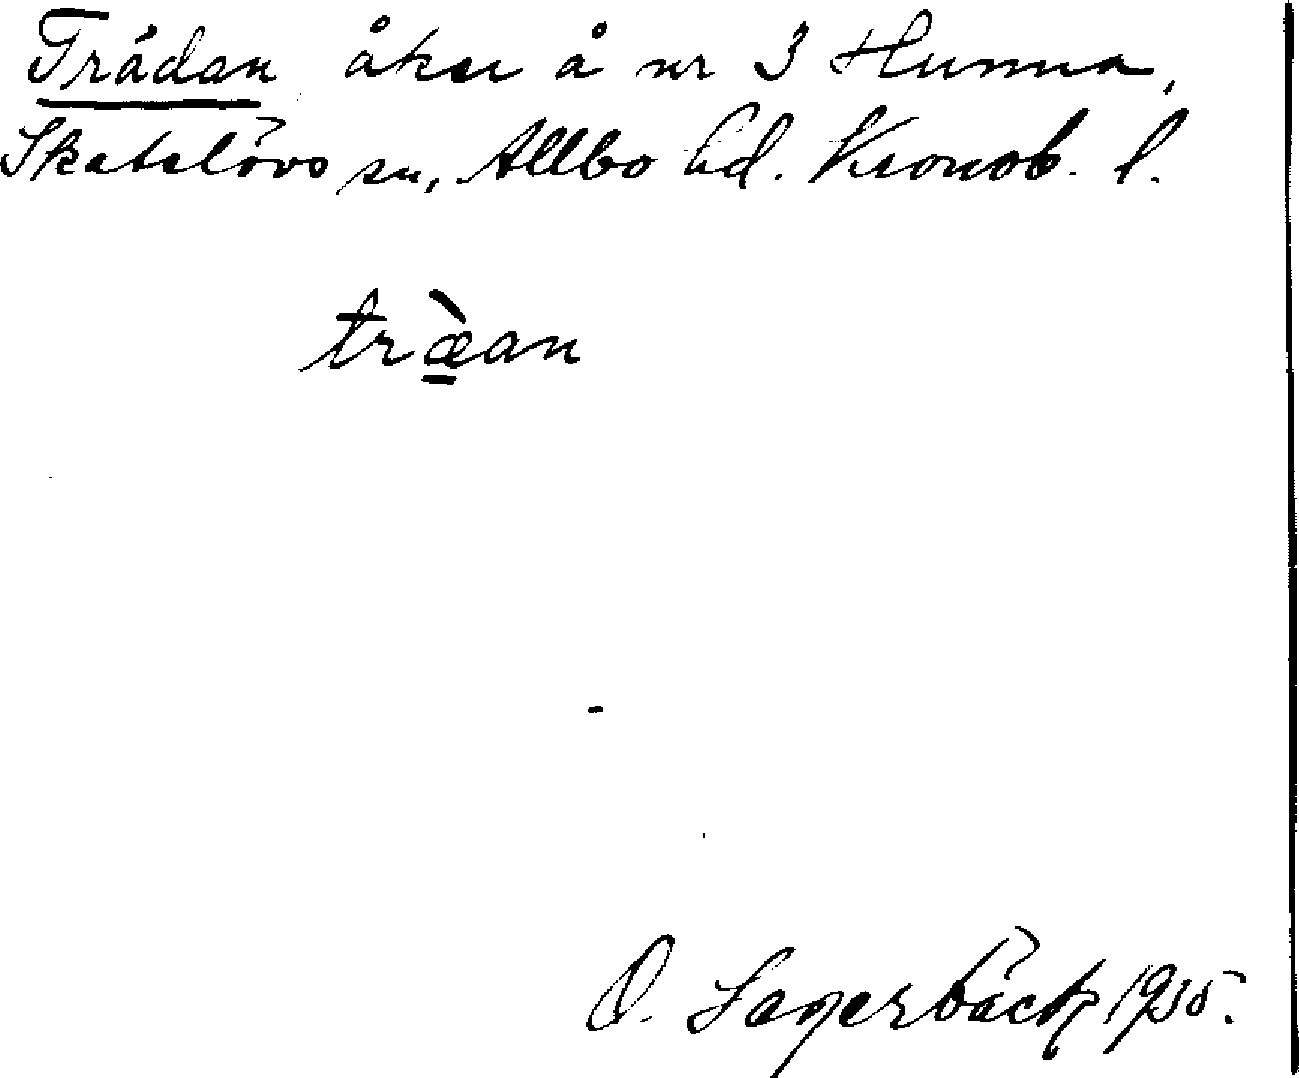 Trädan åker å nr 3 Hunna,
Skatelövs sn, Allbo hd. Kronob. l.
træ̀an
O. Lagerbäck 1935.